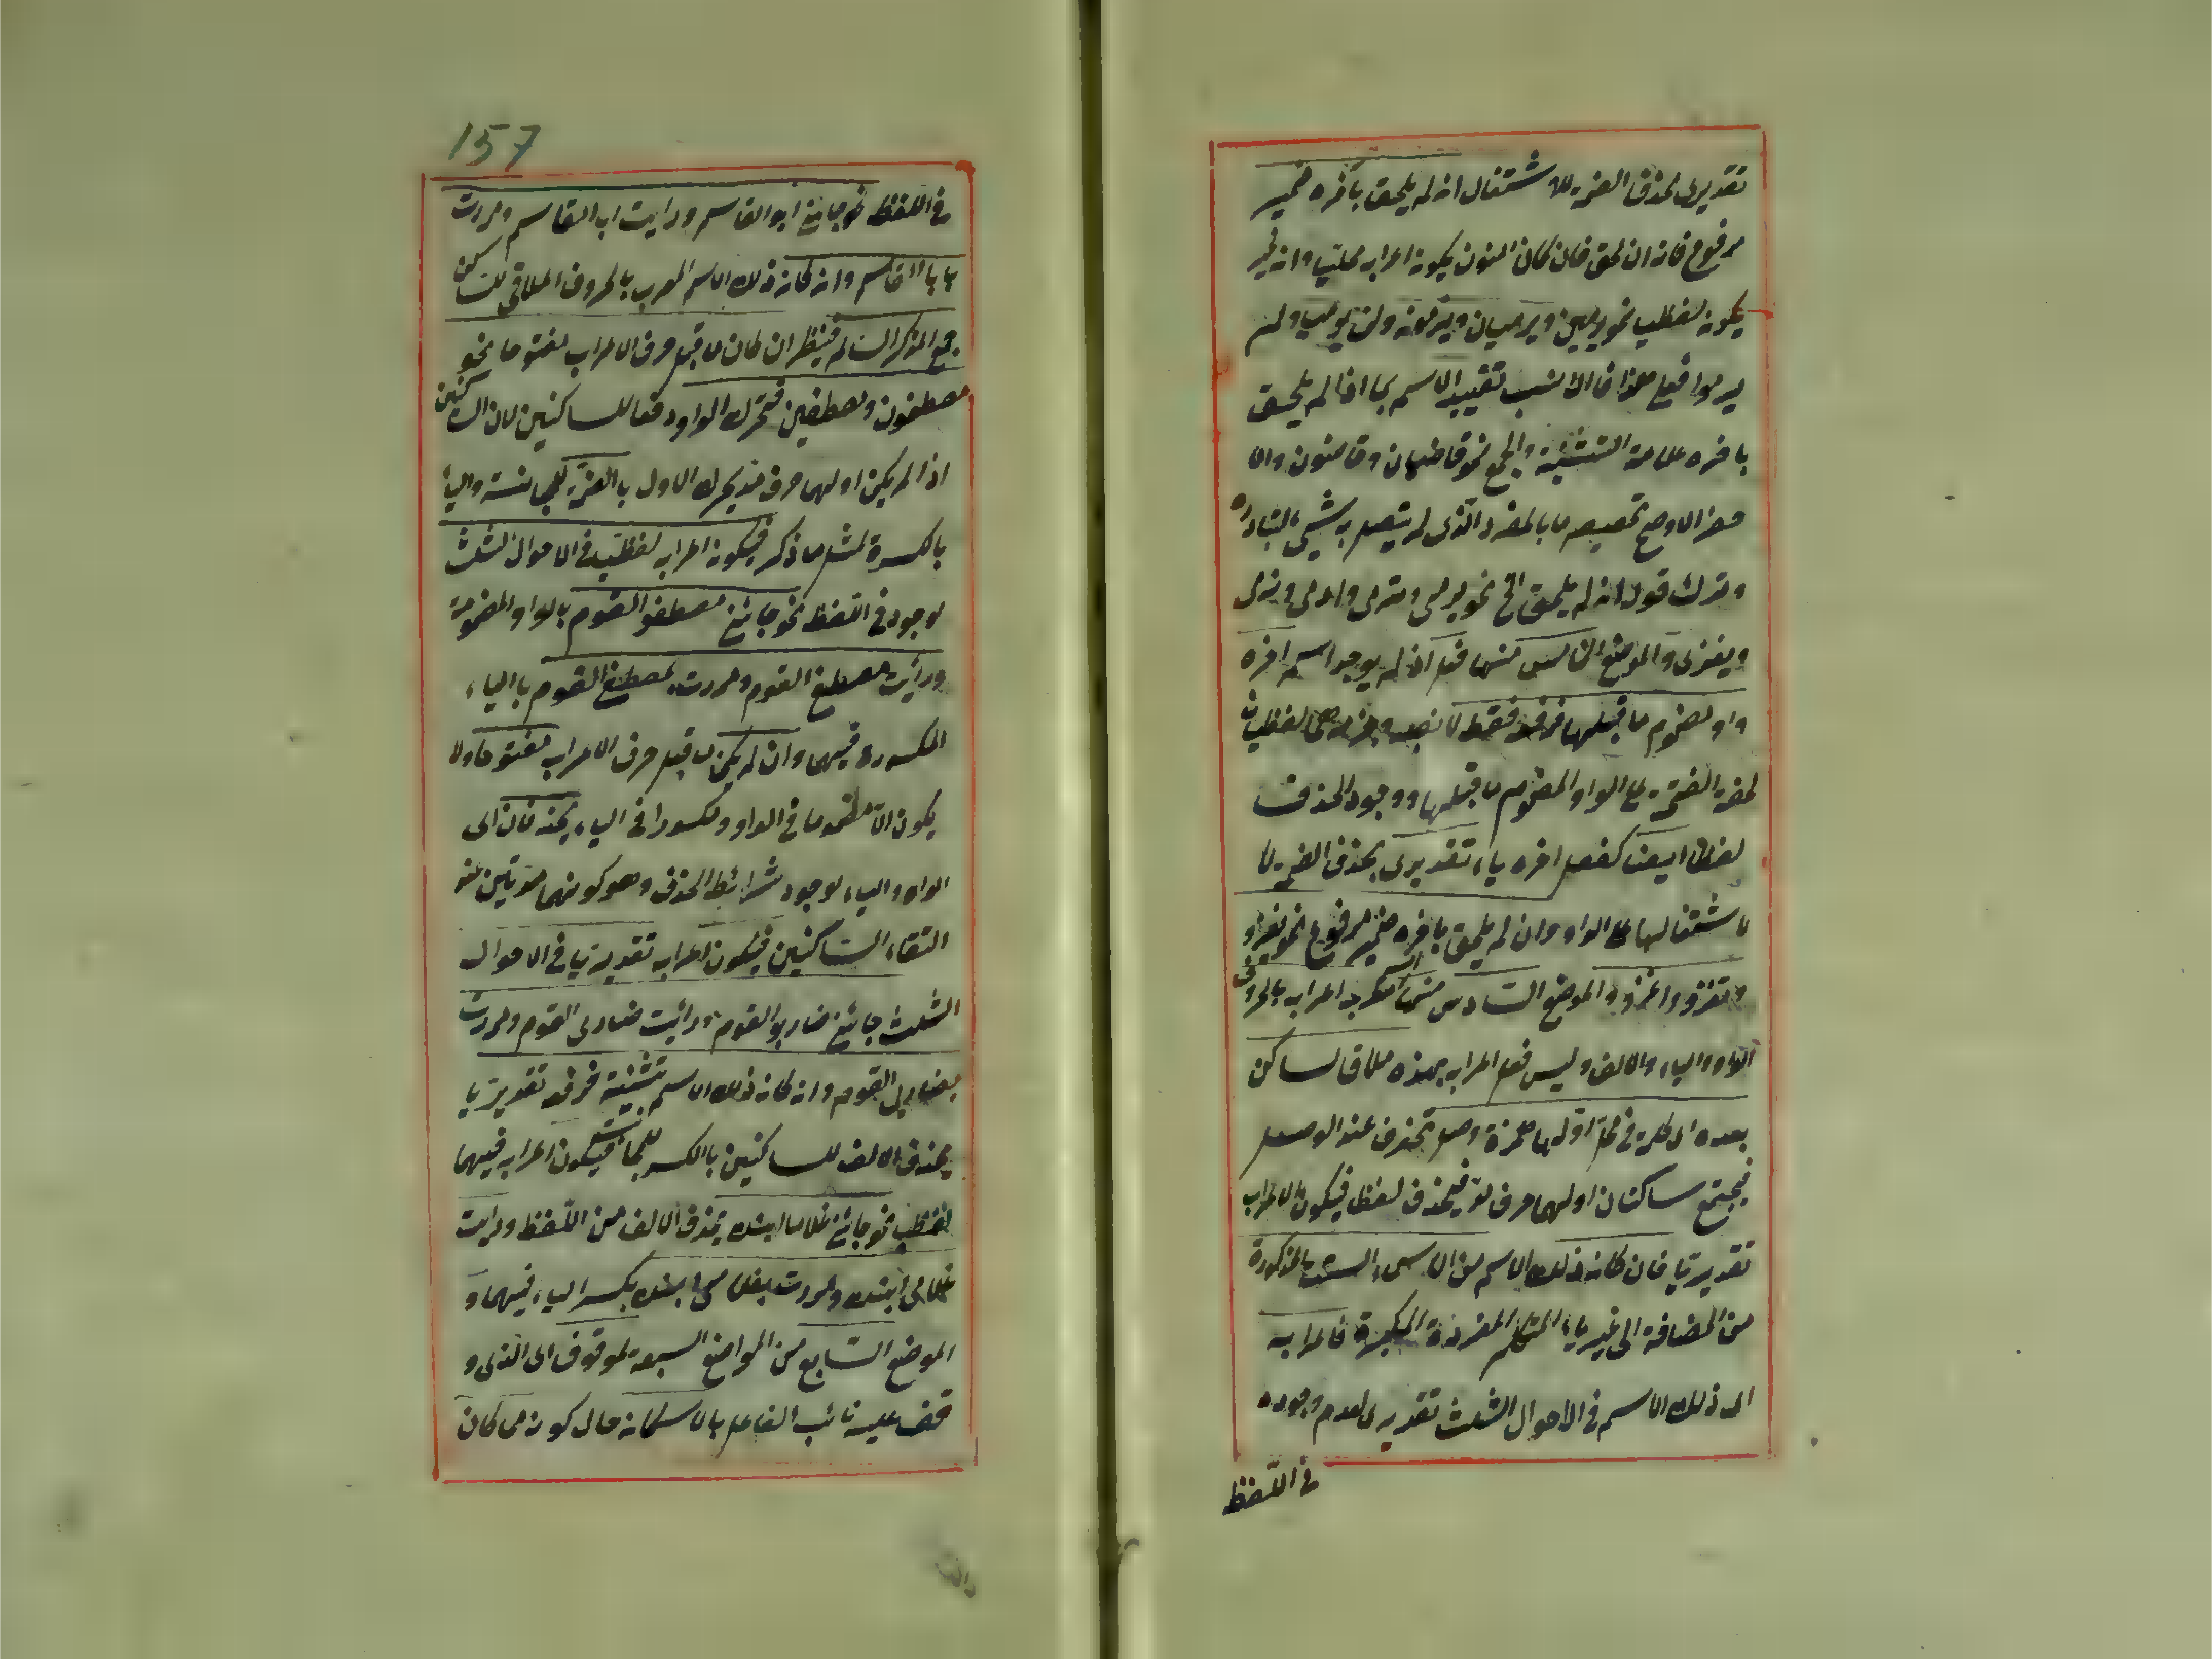 تقديرى بحذف الضمة للاشتغال ان لم يلحق بآخره ضمير
مرفوع فانه ان لحق فان كان النون يكون اعرابه محليا وان غير
يكون لفظيا نحو يرمين ويرميان ويرمون ولن يرميا ولم
يرموا فعلى هذا فالانسب تقييد الاسم بما اذا لم يلحق
باخره علامة التثنية والجمع نحو قاضيان وقاضون والا
وترك قوله ان لم يلحق الخ نحو يرمى وترمى وارمى ونرمى
والموضع الخامس منها فعل آخره
واو مضموم ما قبلها فرفعه فقط لا نصبه وجزمه لفظيان
لخفة الفتحة على الواو المضموم ما قبلها ووجود الحذف
لفظا ايضا كفعل اخره ياء تقديرى بحذف الضمة لا
على الواو وان لم يلحق باخره ضمير مرفوع نحو يغزو
وتغزو واغزو والموضع السادس منها اسم اعرابه بالحروف
الواو والياء والالف وليس فعل اعرابه بهذه ملاق لساكن
بعده اى كلمة فى اولها همزة وصل تحذف عند الوصل
فيجتمع ساكنان اولهما حرف مد فيحذف لفظا فيكون الاعراب
تقديريا فان كان ذلك الاسم من الاسماء الستة المذكورة
من المضافة الى غير ياء المتكلم المفردة المكبرة فاعرابه
اى ذلك الاسم فى الاحوال الثلث تقديرى لعدم وجوده
فى اللفظ
157
فى اللفظ نحو جائنى ابو القاسم ورايت ابا القاسم ومررت
بابى القاسم وان كان ذلك الاسم المعرب بالحروف الملاقى للساكن
جمع المذكر السالم فينظر ان كان ما قبل حرف الاعراب مفتوحا نحو
مصطفون ومصطفين فتحرك الواو دفعا للساكنين لان الساكنين
اذا لم يكن اولهما حرف مد يحرك الاول بالضمة للمجانسة والياء
بالكسرة لمثل ما ذكر فيكون اعرابه لفظيا فى الاحوال الثلث
لوجوده فى اللفظ نحو جائنى مصطفو القوم بالواو المضمومة
ورأيت مصطفى القوم ومررت بمصطفى القوم بالياء
المكسورة فيهما وان لم يكن ما قبل حرف الاعراب مفتوحا ولا
يكون الا مضموما فى الواو ومكسورا فى الياء يحذفان اى
الواو والياء لوجود شرائط الحذف وهو كونهما مدتين عند
التقاء الساكنين فيكون اعرابه تقديريا فى الاحوال
الثلث جائنى ضاربو القوم ورأيت ضاربى القوم ومررت
بضاربى القوم وان كان ذلك الاسم تثنية فرفعه تقديريا
بحذف الالف للساكنين بالكسر فيكون اعرابه فيهما
لفظيا نحو جائنى غلاما ابنك بحذف الالف من اللفظ ورايت
غلامى ابنك ومررت بغلامى ابنك بكسر الياء فيهما و
الموضع السابع من المواضع السبعة الموقوف اى الذى و
قف عليه نائب الفاعل بالاسكان حال كونه مما كان